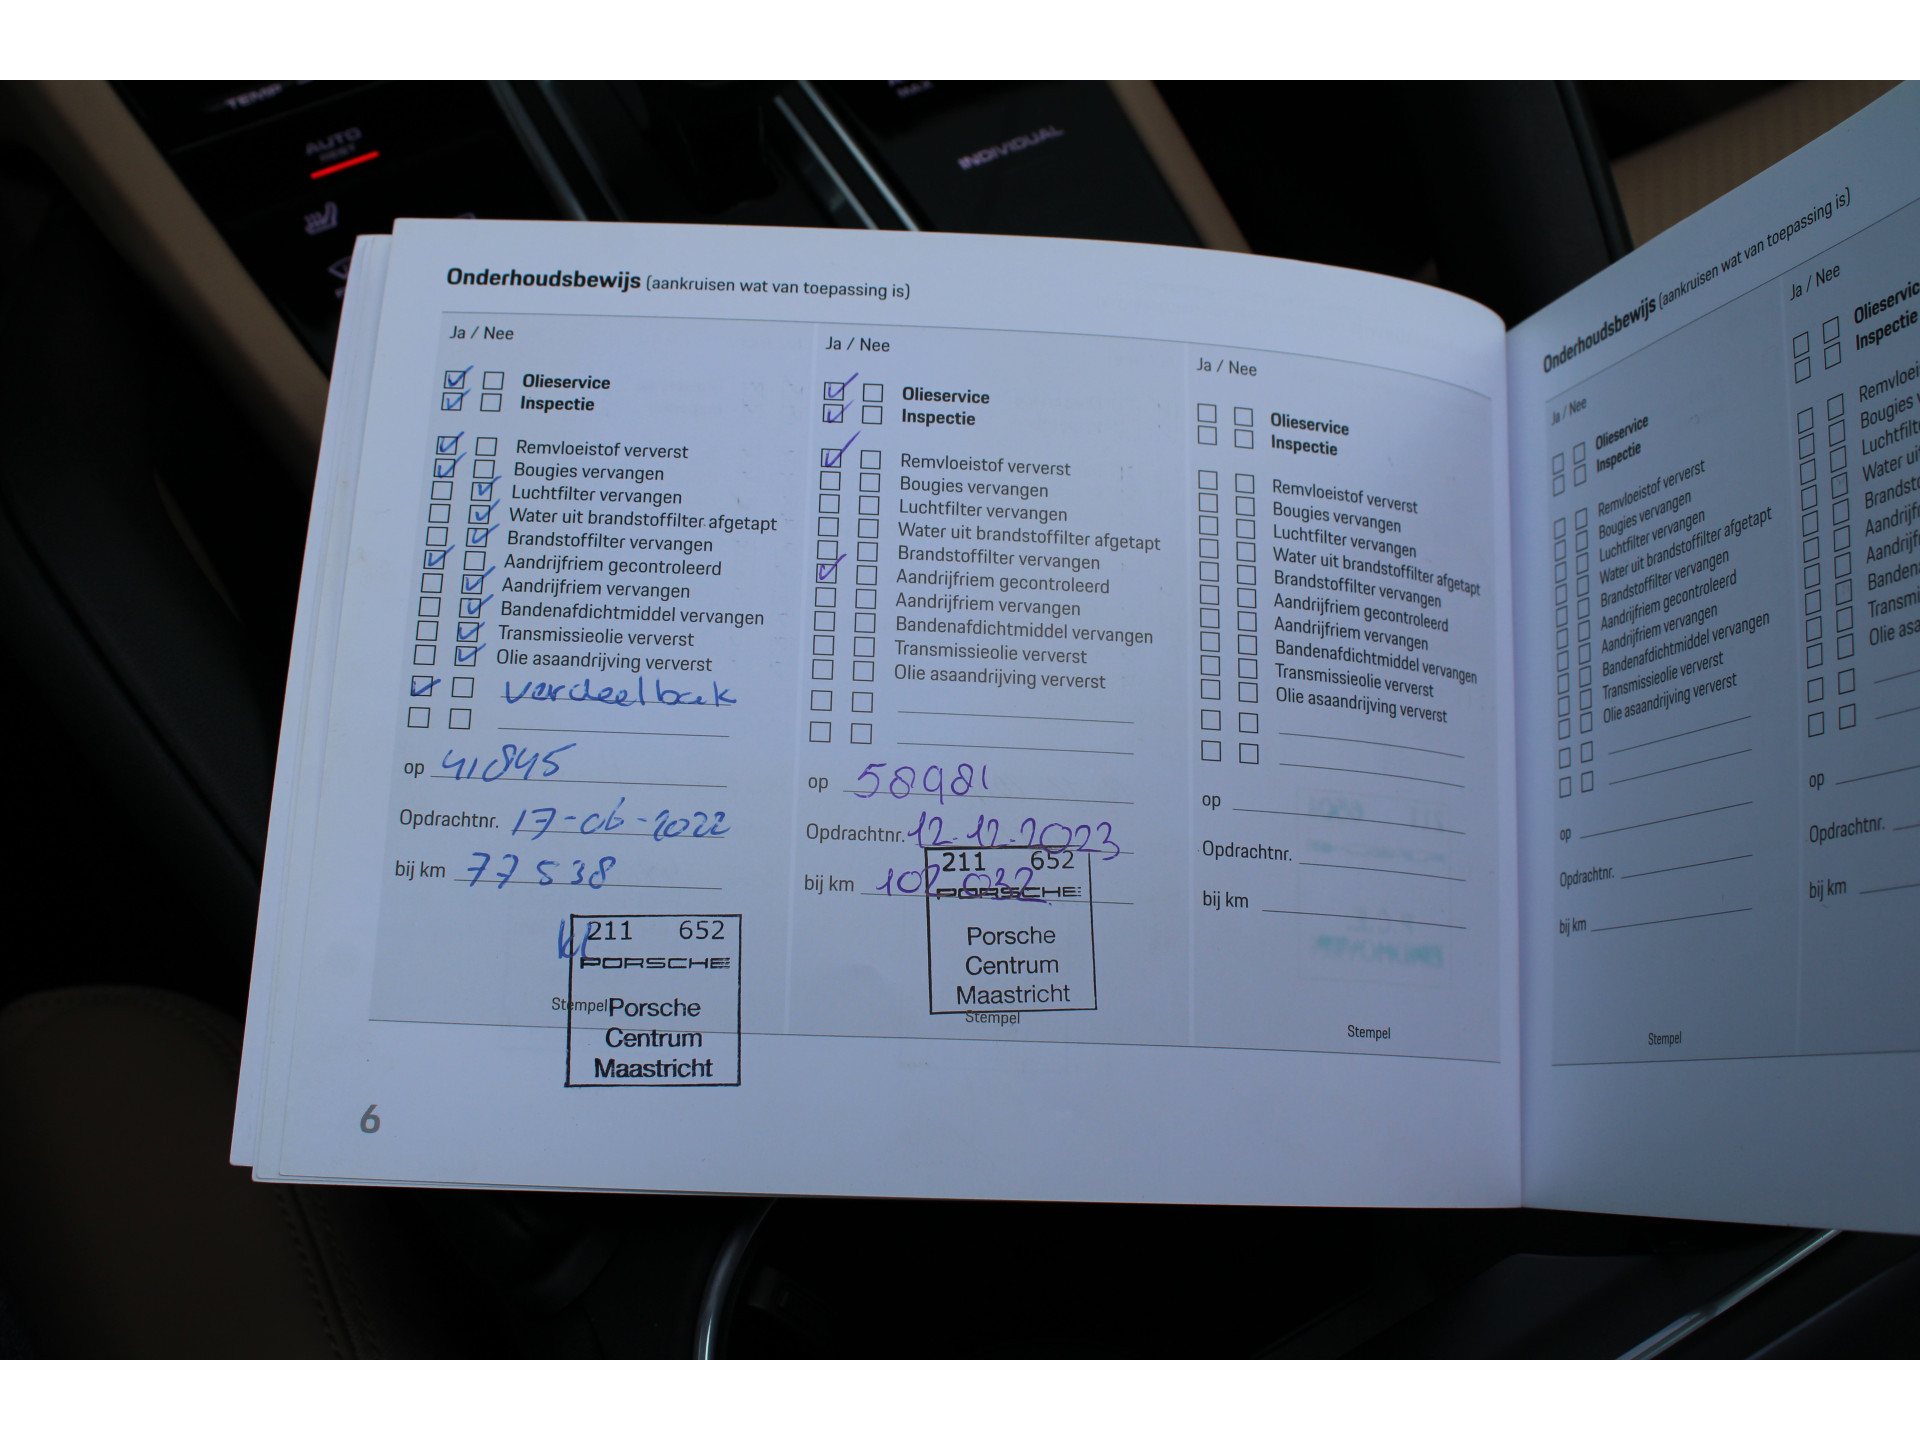 TEMP
AUTO
REST
MAX
INDIVIDUAL
Onderhoudsbewijs (aankruisen wat van toepassing is)
Ja / Nee
Olieservice
Inspectie
Remvloeistof ververst
Bougies vervangen
Luchtfilter vervangen
Water uit brandstoffilter afgetapt
Brandstoffilter vervangen
Aandrijfriem gecontroleerd
Aandrijfriem vervangen
Bandenafdichtmiddel vervangen
Transmissieolie ververst
Olie asaandrijving ververst
verdeelbak
op 41845
Opdrachtnr. 17-06-2022
bij km 77538
211 652
PORSCHE
Stempel
Porsche
Centrum
Maastricht
Ja / Nee
Olieservice
Inspectie
Remvloeistof ververst
Bougies vervangen
Luchtfilter vervangen
Water uit brandstoffilter afgetapt
Brandstoffilter vervangen
Aandrijfriem gecontroleerd
Aandrijfriem vervangen
Bandenafdichtmiddel vervangen
Transmissieolie ververst
Olie asaandrijving ververst
op 58981
Opdrachtnr. 12-12-2023
211 652
bij km 102.032
PORSCHE
Porsche
Centrum
Maastricht
Stempel
Ja / Nee
Olieservice
Inspectie
Remvloeistof ververst
Bougies vervangen
Luchtfilter vervangen
Water uit brandstoffilter afgetapt
Brandstoffilter vervangen
Aandrijfriem gecontroleerd
Aandrijfriem vervangen
Bandenafdichtmiddel vervangen
Transmissieolie ververst
Olie asaandrijving ververst
op
Opdrachtnr.
bij km
Stempel
6
Onderhoudsbewijs (aankruisen wat van toepassing is)
Ja / Nee
Olieservice
Inspectie
Remvloeistof ververst
Bougies vervangen
Luchtfilter vervangen
Water uit brandstoffilter afgetapt
Brandstoffilter vervangen
Aandrijfriem gecontroleerd
Aandrijfriem vervangen
Bandenafdichtmiddel vervangen
Transmissieolie ververst
Olie asaandrijving ververst
op
Opdrachtnr.
bij km
Stempel
Ja / Nee
Olieservic
Inspectie
Remvloei
Bougies v
Luchtfilt
Water ui
Brandsto
Aandrijf
Aandrijf
Bandena
Transmi
Olie asa
op
Opdrachtnr.
bij km